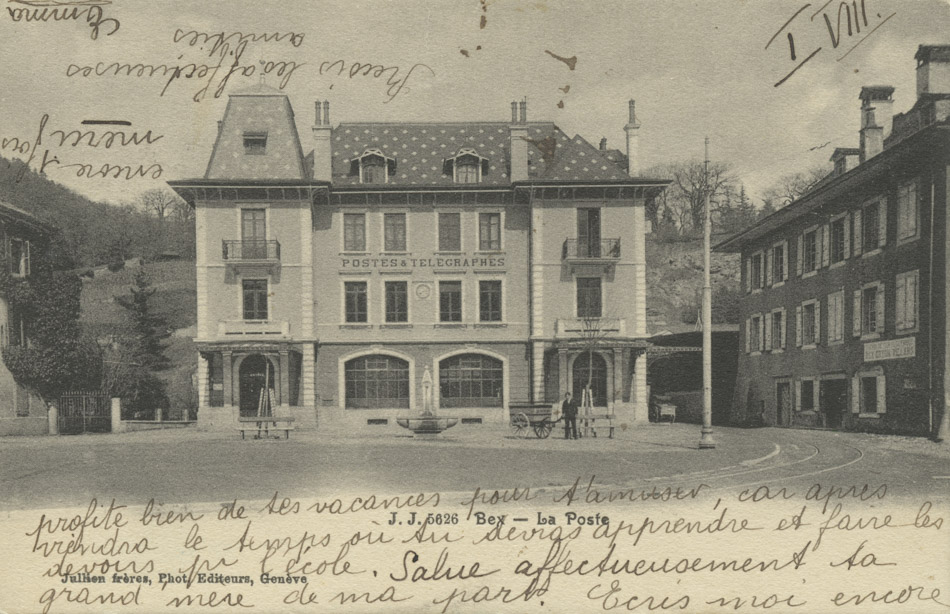 I VIII.
POSTES & TELEGRAPHES
profite bien de tes vacances pour t'amuser, car après
J. J. 5626 Bex — La Poste
viendra le temps où tu devras apprendre et faire les
devoirs pr l'école. Salue affectueusement ta
Jullien frères, Phot. Editeurs, Genève
grand'mère de ma part. Ecris moi encore
encore 1 fois
merci
Reçois les affectueuses
amitiés
Emma